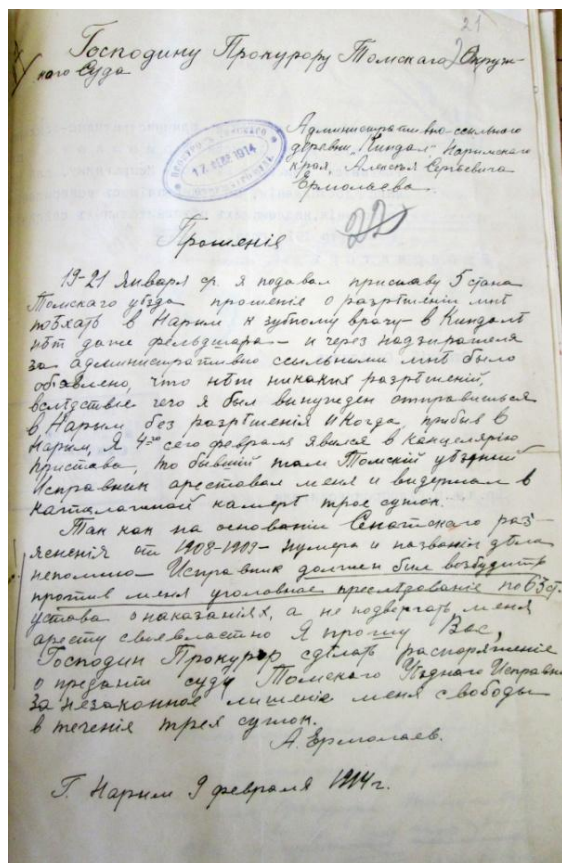 21
Господину Прокурору Томскаго Окруж-
наго Суда
17 ФЕВ 1914
Административно-ссыльного
деревни "Киндал" Нарымскаго
края, Алексея Сергѣевича
Ермолаева
22
Прошеніе
19-21 Января ср. я подавал приставу 5 стана
Томскаго уѣзда прошеніе о разрѣшеніи мнѣ
поѣхать в Нарым к зубному врачу – в Киндалѣ
нѣт даже фельдшера – и через надзирателя
за административно ссыльными мнѣ было
объявлено, что нѣт никаких разрѣшеній,
вслѣдствіе чего я был вынужден отправиться
в Нарым без разрѣшенія и когда, прибыв в
Нарым, я 4го сего февраля явился в канцелярію
пристава, то бывшій там Томскій уѣздный
Исправник арестовал меня и выдержал в
каталажной камерѣ трое суток.
Так как на основаніи Сенатскаго раз-
ясненія от 1908-1909 – нумера и названія дѣла
непомню – Исправник должен был возбудить
против меня уголовное преслѣдованіе по 63 ст.
устава о наказаніях, а не подвергать меня
аресту своевластно я прошу Вас,
Господин Прокурор сдѣлать распоряженіе
о преданіи суду Томскаго Уѣзднаго Исправни
за незаконное лишеніе меня свободы
в теченія трех суток.
А. Ермолаев.
Г. Нарым 9 февраля 1914 г.